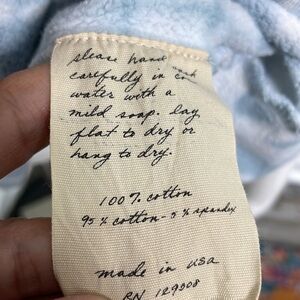 please hand wash
carefully in cool
water with a
mild soap. lay
flat to dry or
hang to dry.
100% cotton
95% cotton - 5% spandex
made in USA
RN 129508